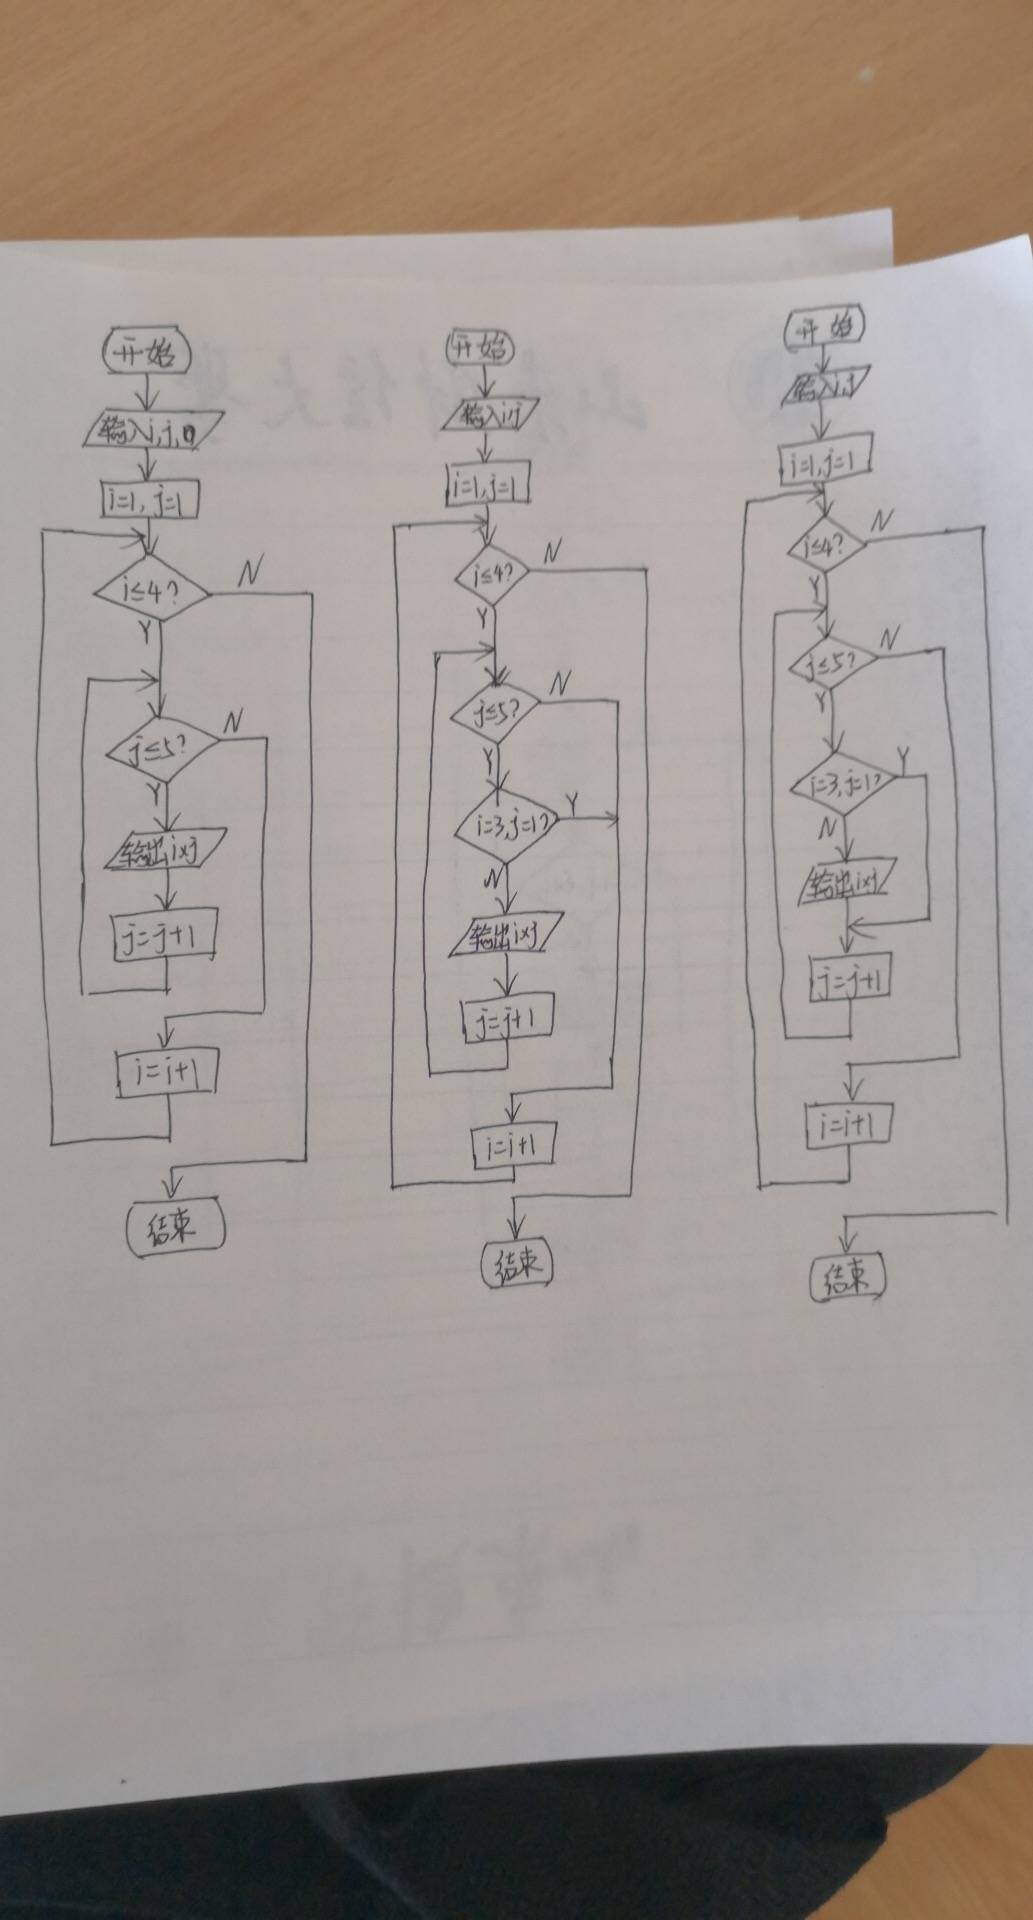 开始
输入i,j,
i=1, j=1
i≤4?
N
Y
j≤5?
N
Y
输出i×j
j=j+1
i=i+1
结束
开始
输入i,j
i=1,j=1
i≤4?
N
Y
j≤5?
N
Y
i=3,j=1?
Y
N
输出i×j
j=j+1
i=i+1
结束
开始
输入i,j
i=1,j=1
i≤4?
N
Y
j≤5?
N
Y
i=3,j=1?
Y
N
输出i×j
j=j+1
i=i+1
结束